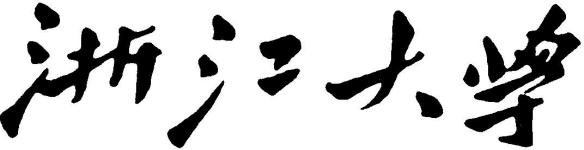 浙江大学